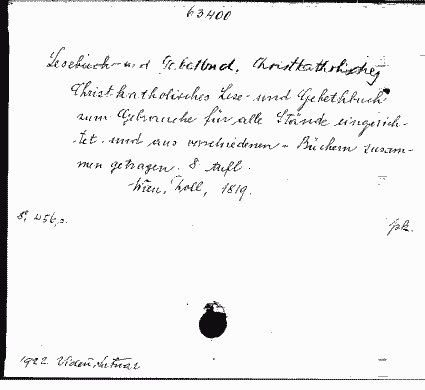 63400
Lesebuch- und Gebetbuch, Christkatholisches
Christkatholisches Lese- und Gebethbuch
zum Gebrauche für alle Stände eingerich-
tet und aus verschiedenen Büchern zusam-
men getragen. 8 Aufl.
Wien, Zoll, 1819.
8°, 456, s.
pk.
1922. Viden,